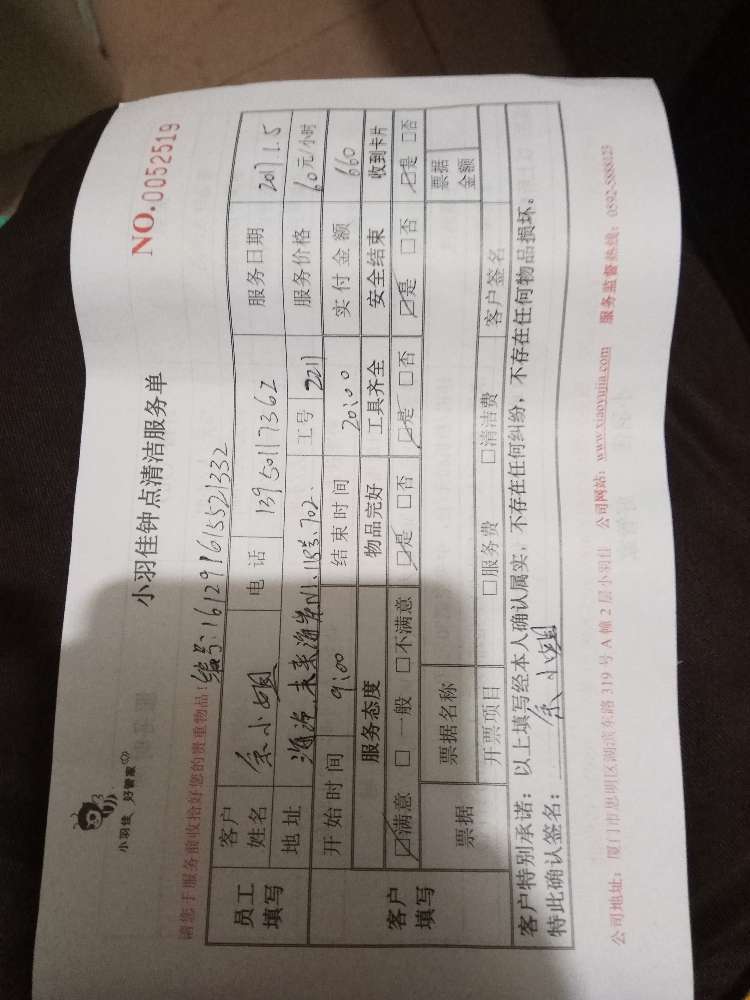 小羽佳 好管家
小羽佳钟点清洁服务单
NO.0052519
请您于服务前收拾好您的贵重物品!
编号:1612991615521332
员工填写 客户姓名 余小姐 电话 13950117362 服务日期 2017.1.5
地址 未来海岸 118号.702. 工号 2211 服务价格 60元/小时
客户填写 开始时间 9:00 结束时间 20:00 实付金额 660
服务态度 物品完好 工具齐全 安全结束 收到卡片
☑满意 □一般 □不满意 ☑是 □否 ☑是 □否 ☑是 □否 ☑是 □否
票据 票据名称 票据金额
开票项目 □服务费 □清洁费 客户签名
客户特别承诺:以上填写经本人确认属实,不存在任何纠纷,不存在任何物品损坏。
特此确认签名: 余小姐
公司地址:厦门市思明区湖滨东路319号A幢2层小羽佳 公司网站:www.xiaoyujia.com 服务监督热线:0592-5888125